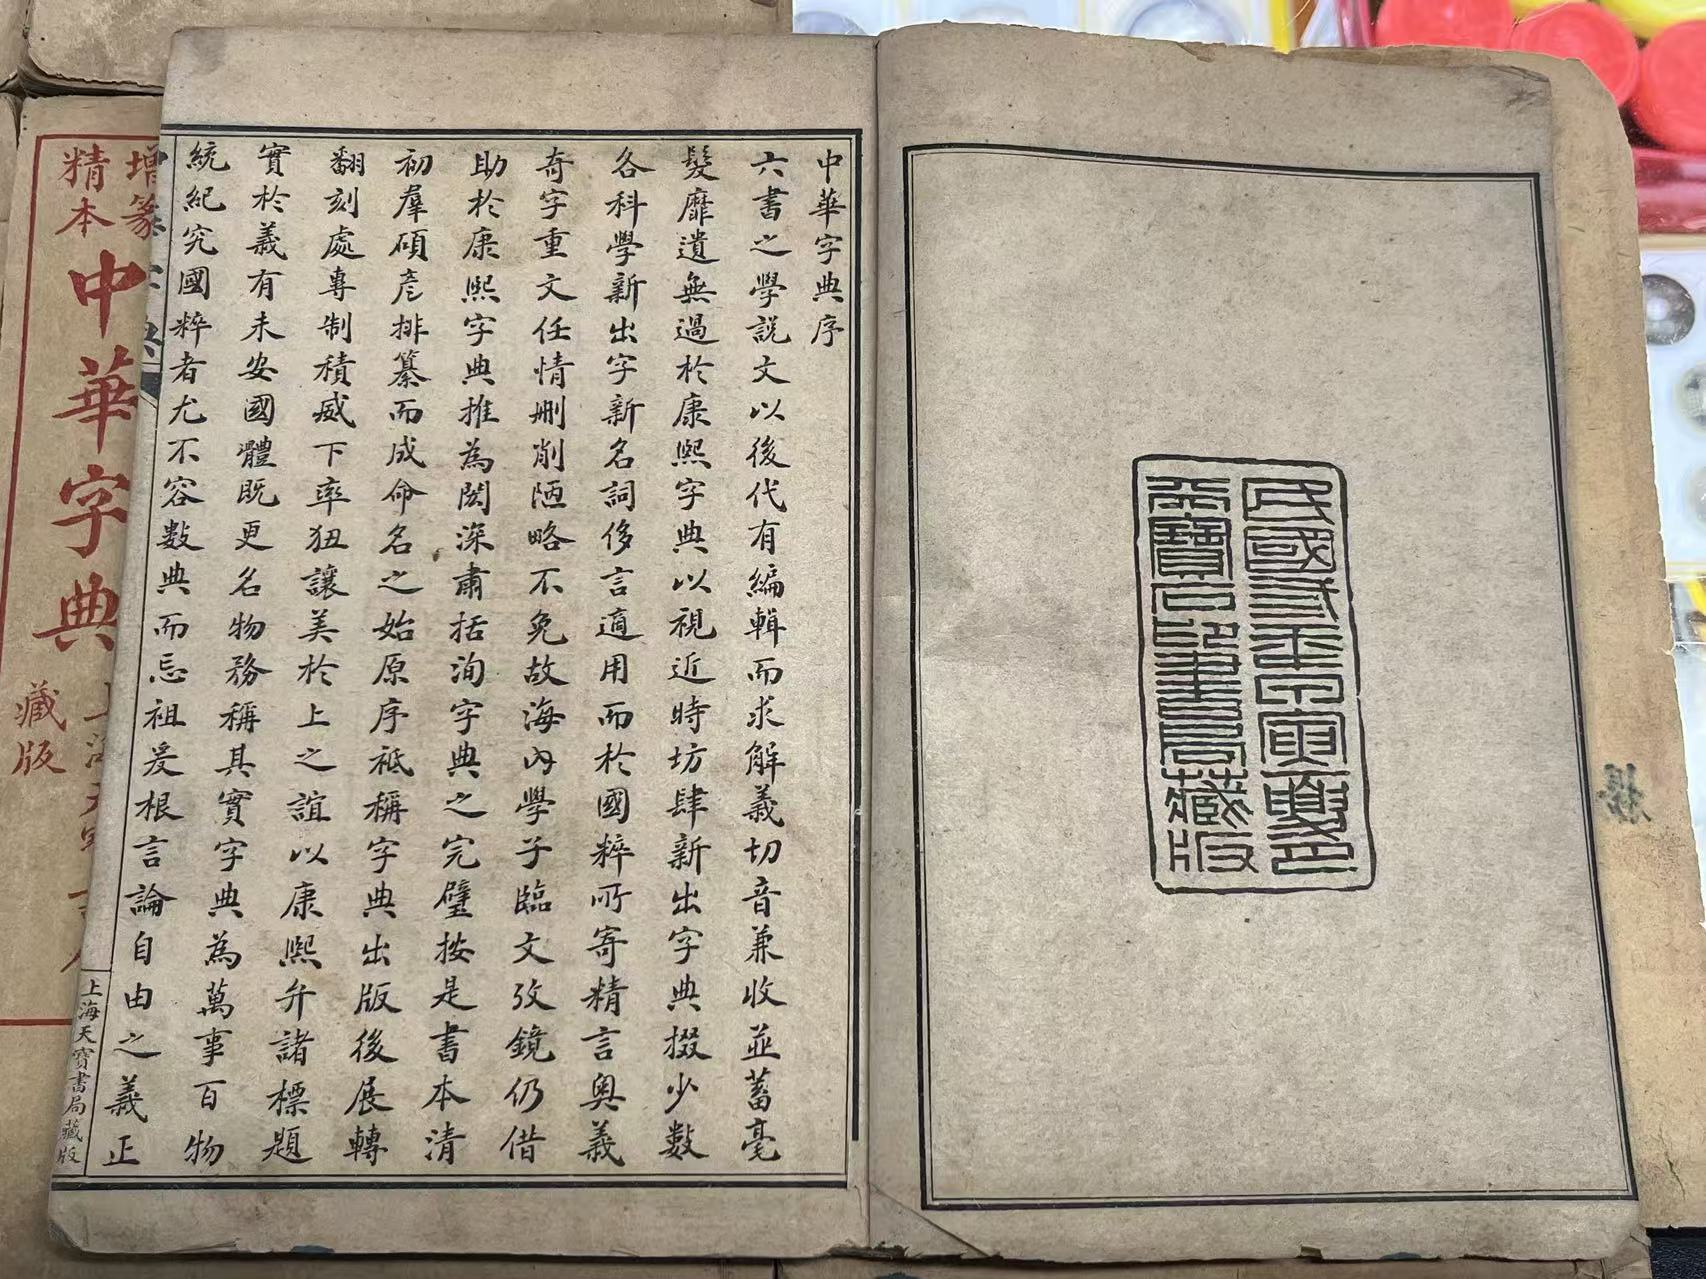 民國三年甲寅夏印
天寶石印書局藏版
中華字典序
六書之學說文以後代有編輯而求解義切音兼收並蓄毫
髮靡遺無過於康熙字典以視近時坊肆新出字典掇少數
各科學新出字新名詞侈言適用而於國粹所寄精言奧義
奇字重文任情刪削陋略不免故海內學子臨文攷鏡仍借
助於康熙字典推為閎深肅括洵字典之完璧按是書本清
初羣碩彥排纂而成命名之始原序祗稱字典出版後展轉
翻刻處專制積威下率狃讓美於上之誼以康熙弁諸標題
實於義有未安國體既更名物務稱其實字典為萬事百物
統紀究國粹者尤不容數典而忘祖爰根言論自由之義正
上海天寶書局藏版
增篆
精本
中華字典
上海天
藏版